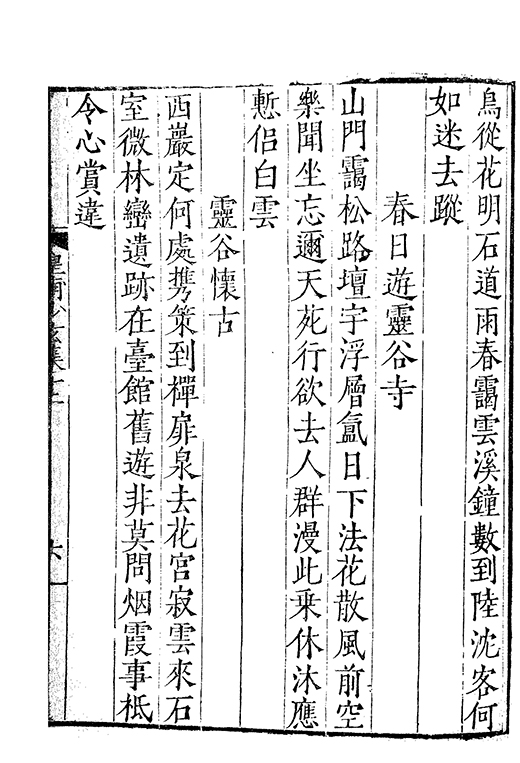 鳥從花明石道雨春靄雲溪鐘數到陸沈客何
如迷去蹤
春日遊靈谷寺
山門靄松路壇宇浮層氳日下法花散風前空
樂聞坐忘邇天苑行欲去人群漫此乘休沐應
慙侣白雲
靈谷懷古
西巖定何處携策到樿扉泉去花宫寂雲來石
室微林巒遺跡在臺館舊遊非莫問烟霞事柢
令心賞違
皇甫少玄集
六